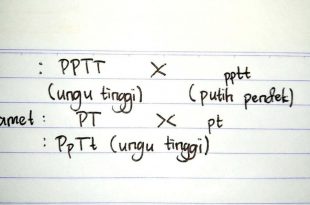 : PPTT × pptt
(ungu tinggi) (putih pendek)
amet : PT × pt
: PpTt (ungu tinggi)